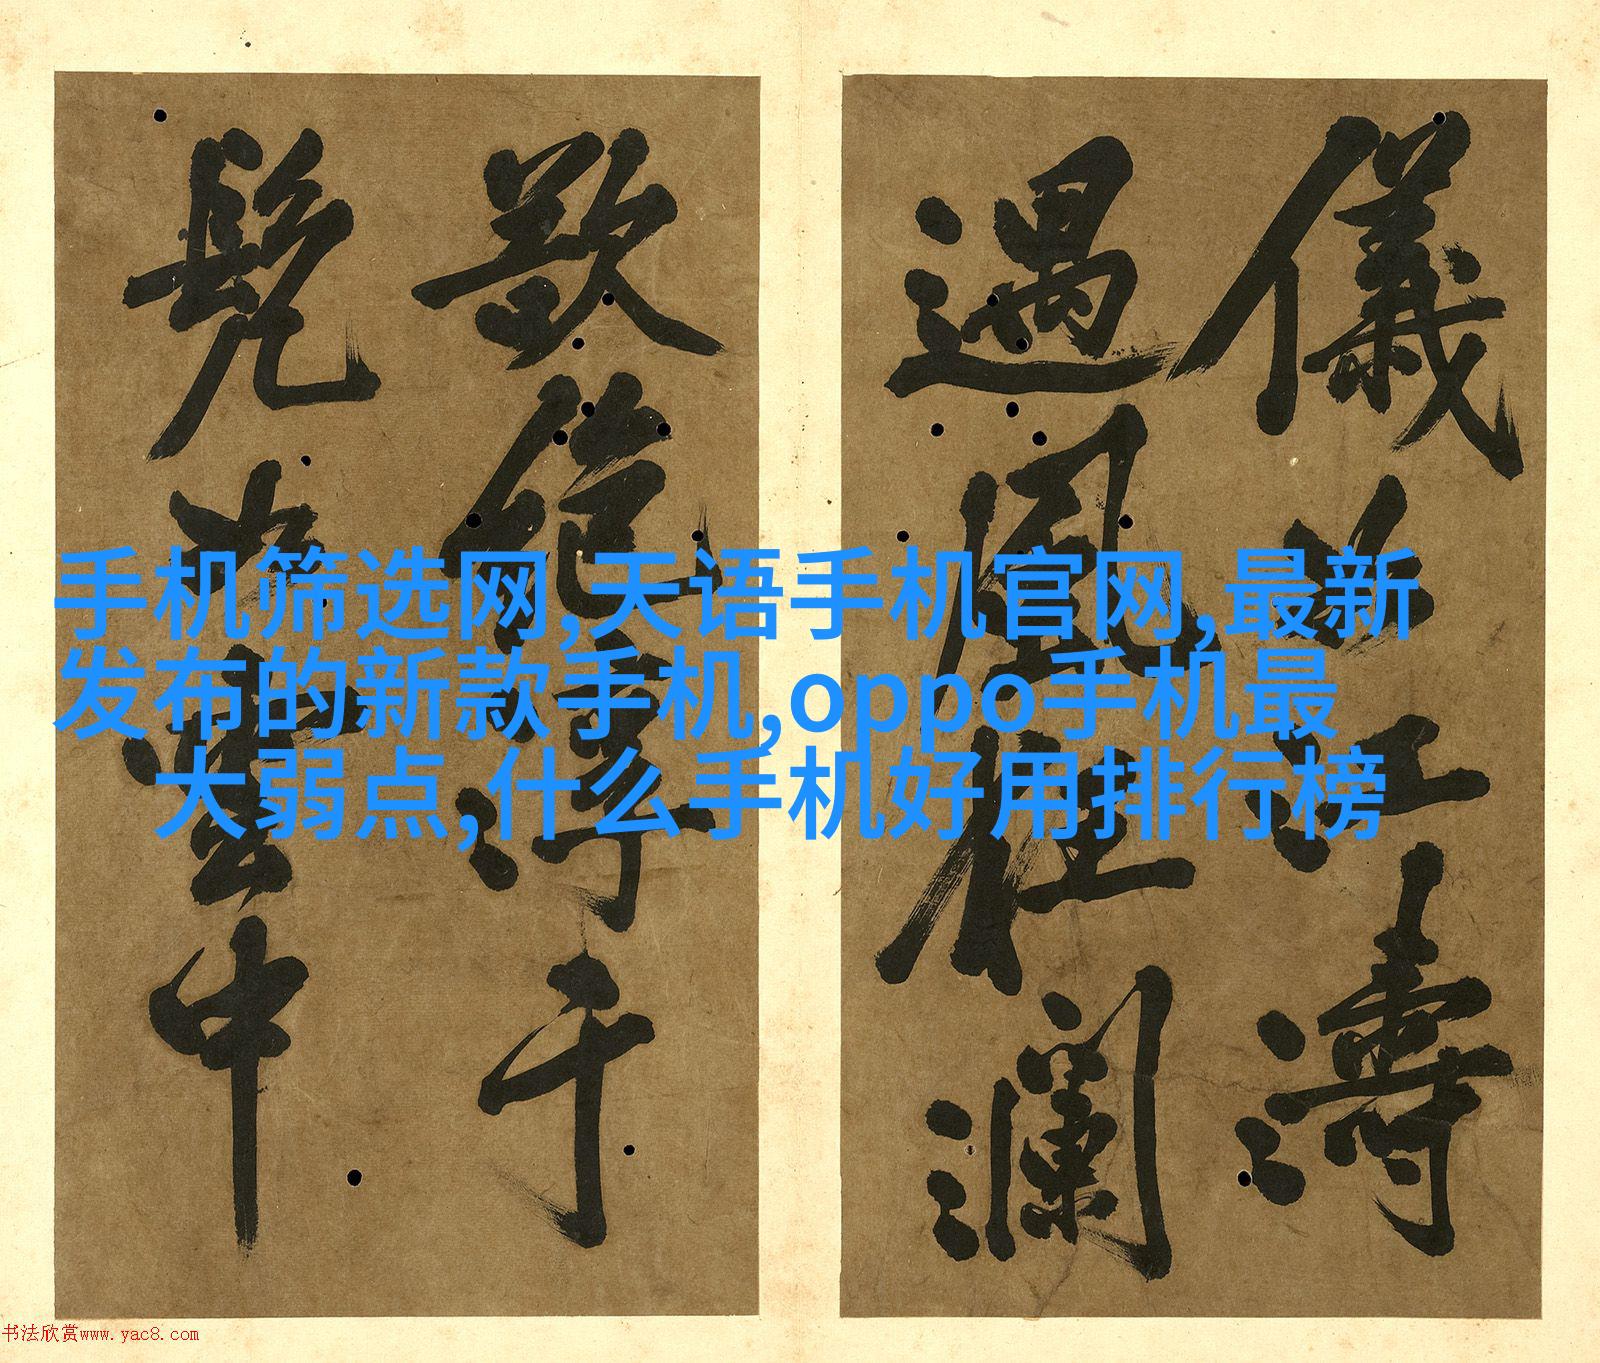 手机筛选网,天语手机官网,最新
发布的新款手机,oppo手机最
大弱点,什么手机好用排行榜
儀江濤
風瀾
于
雲中
书法欣赏www.yac8.com